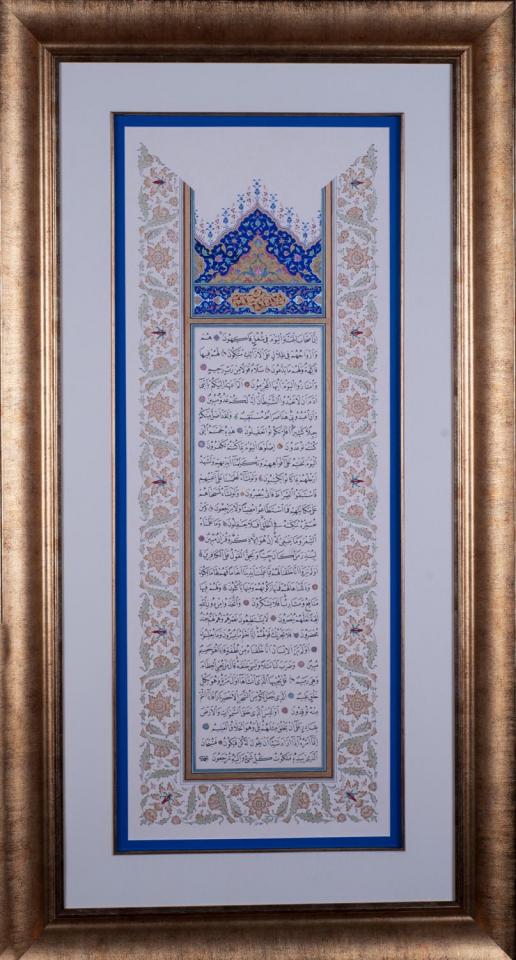 إِنَّ أَصْحَابَ الْجَنَّةِ الْيَوْمَ فِي شُغُلٍ فَاكِهُونَ هُمْ
وَأَزْوَاجُهُمْ فِي ظِلَالٍ عَلَى الْأَرَائِكِ مُتَّكِئُونَ لَهُمْ فِيهَا
فَاكِهَةٌ وَلَهُمْ مَا يَدَّعُونَ سَلَامٌ قَوْلًا مِنْ رَبٍّ رَحِيمٍ
وَامْتَازُوا الْيَوْمَ أَيُّهَا الْمُجْرِمُونَ أَلَمْ أَعْهَدْ إِلَيْكُمْ يَا بَنِي
آدَمَ أَنْ لَا تَعْبُدُوا الشَّيْطَانَ إِنَّهُ لَكُمْ عَدُوٌّ مُبِينٌ
وَأَنِ اعْبُدُونِي هَذَا صِرَاطٌ مُسْتَقِيمٌ وَلَقَدْ أَضَلَّ مِنْكُمْ
جِبِلًّا كَثِيرًا أَفَلَمْ تَكُونُوا تَعْقِلُونَ هَذِهِ جَهَنَّمُ الَّتِي
كُنْتُمْ تُوعَدُونَ اصْلَوْهَا الْيَوْمَ بِمَا كُنْتُمْ تَكْفُرُونَ
الْيَوْمَ نَخْتِمُ عَلَى أَفْوَاهِهِمْ وَتُكَلِّمُنَا أَيْدِيهِمْ وَتَشْهَدُ
أَرْجُلُهُمْ بِمَا كَانُوا يَكْسِبُونَ وَلَوْ نَشَاءُ لَطَمَسْنَا عَلَى أَعْيُنِهِمْ
فَاسْتَبَقُوا الصِّرَاطَ فَأَنَّى يُبْصِرُونَ وَلَوْ نَشَاءُ لَمَسَخْنَاهُمْ
عَلَى مَكَانَتِهِمْ فَمَا اسْتَطَاعُوا مُضِيًّا وَلَا يَرْجِعُونَ وَمَنْ
نُعَمِّرْهُ نُنَكِّسْهُ فِي الْخَلْقِ أَفَلَا يَعْقِلُونَ وَمَا عَلَّمْنَاهُ
الشِّعْرَ وَمَا يَنْبَغِي لَهُ إِنْ هُوَ إِلَّا ذِكْرٌ وَقُرْآنٌ مُبِينٌ
لِيُنْذِرَ مَنْ كَانَ حَيًّا وَيَحِقَّ الْقَوْلُ عَلَى الْكَافِرِينَ
أَوَلَمْ يَرَوْا أَنَّا خَلَقْنَا لَهُمْ مِمَّا عَمِلَتْ أَيْدِينَا أَنْعَامًا فَهُمْ لَهَا مَالِكُونَ
وَذَلَّلْنَاهَا لَهُمْ فَمِنْهَا رَكُوبُهُمْ وَمِنْهَا يَأْكُلُونَ وَلَهُمْ فِيهَا
مَنَافِعُ وَمَشَارِبُ أَفَلَا يَشْكُرُونَ وَاتَّخَذُوا مِنْ دُونِ اللَّهِ
آلِهَةً لَعَلَّهُمْ يُنْصَرُونَ لَا يَسْتَطِيعُونَ نَصْرَهُمْ وَهُمْ لَهُمْ جُنْدٌ
مُحْضَرُونَ فَلَا يَحْزُنْكَ قَوْلُهُمْ إِنَّا نَعْلَمُ مَا يُسِرُّونَ وَمَا يُعْلِنُونَ
أَوَلَمْ يَرَ الْإِنْسَانُ أَنَّا خَلَقْنَاهُ مِنْ نُطْفَةٍ فَإِذَا هُوَ خَصِيمٌ
مُبِينٌ وَضَرَبَ لَنَا مَثَلًا وَنَسِيَ خَلْقَهُ قَالَ مَنْ يُحْيِي الْعِظَامَ
وَهِيَ رَمِيمٌ قُلْ يُحْيِيهَا الَّذِي أَنْشَأَهَا أَوَّلَ مَرَّةٍ وَهُوَ بِكُلِّ
خَلْقٍ عَلِيمٌ الَّذِي جَعَلَ لَكُمْ مِنَ الشَّجَرِ الْأَخْضَرِ نَارًا فَإِذَا أَنْتُمْ
مِنْهُ تُوقِدُونَ أَوَلَيْسَ الَّذِي خَلَقَ السَّمَاوَاتِ وَالْأَرْضَ
بِقَادِرٍ عَلَى أَنْ يَخْلُقَ مِثْلَهُمْ بَلَى وَهُوَ الْخَلَّاقُ الْعَلِيمُ
إِنَّمَا أَمْرُهُ إِذَا أَرَادَ شَيْئًا أَنْ يَقُولَ لَهُ كُنْ فَيَكُونُ فَسُبْحَانَ
الَّذِي بِيَدِهِ مَلَكُوتُ كُلِّ شَيْءٍ وَإِلَيْهِ تُرْجَعُونَ